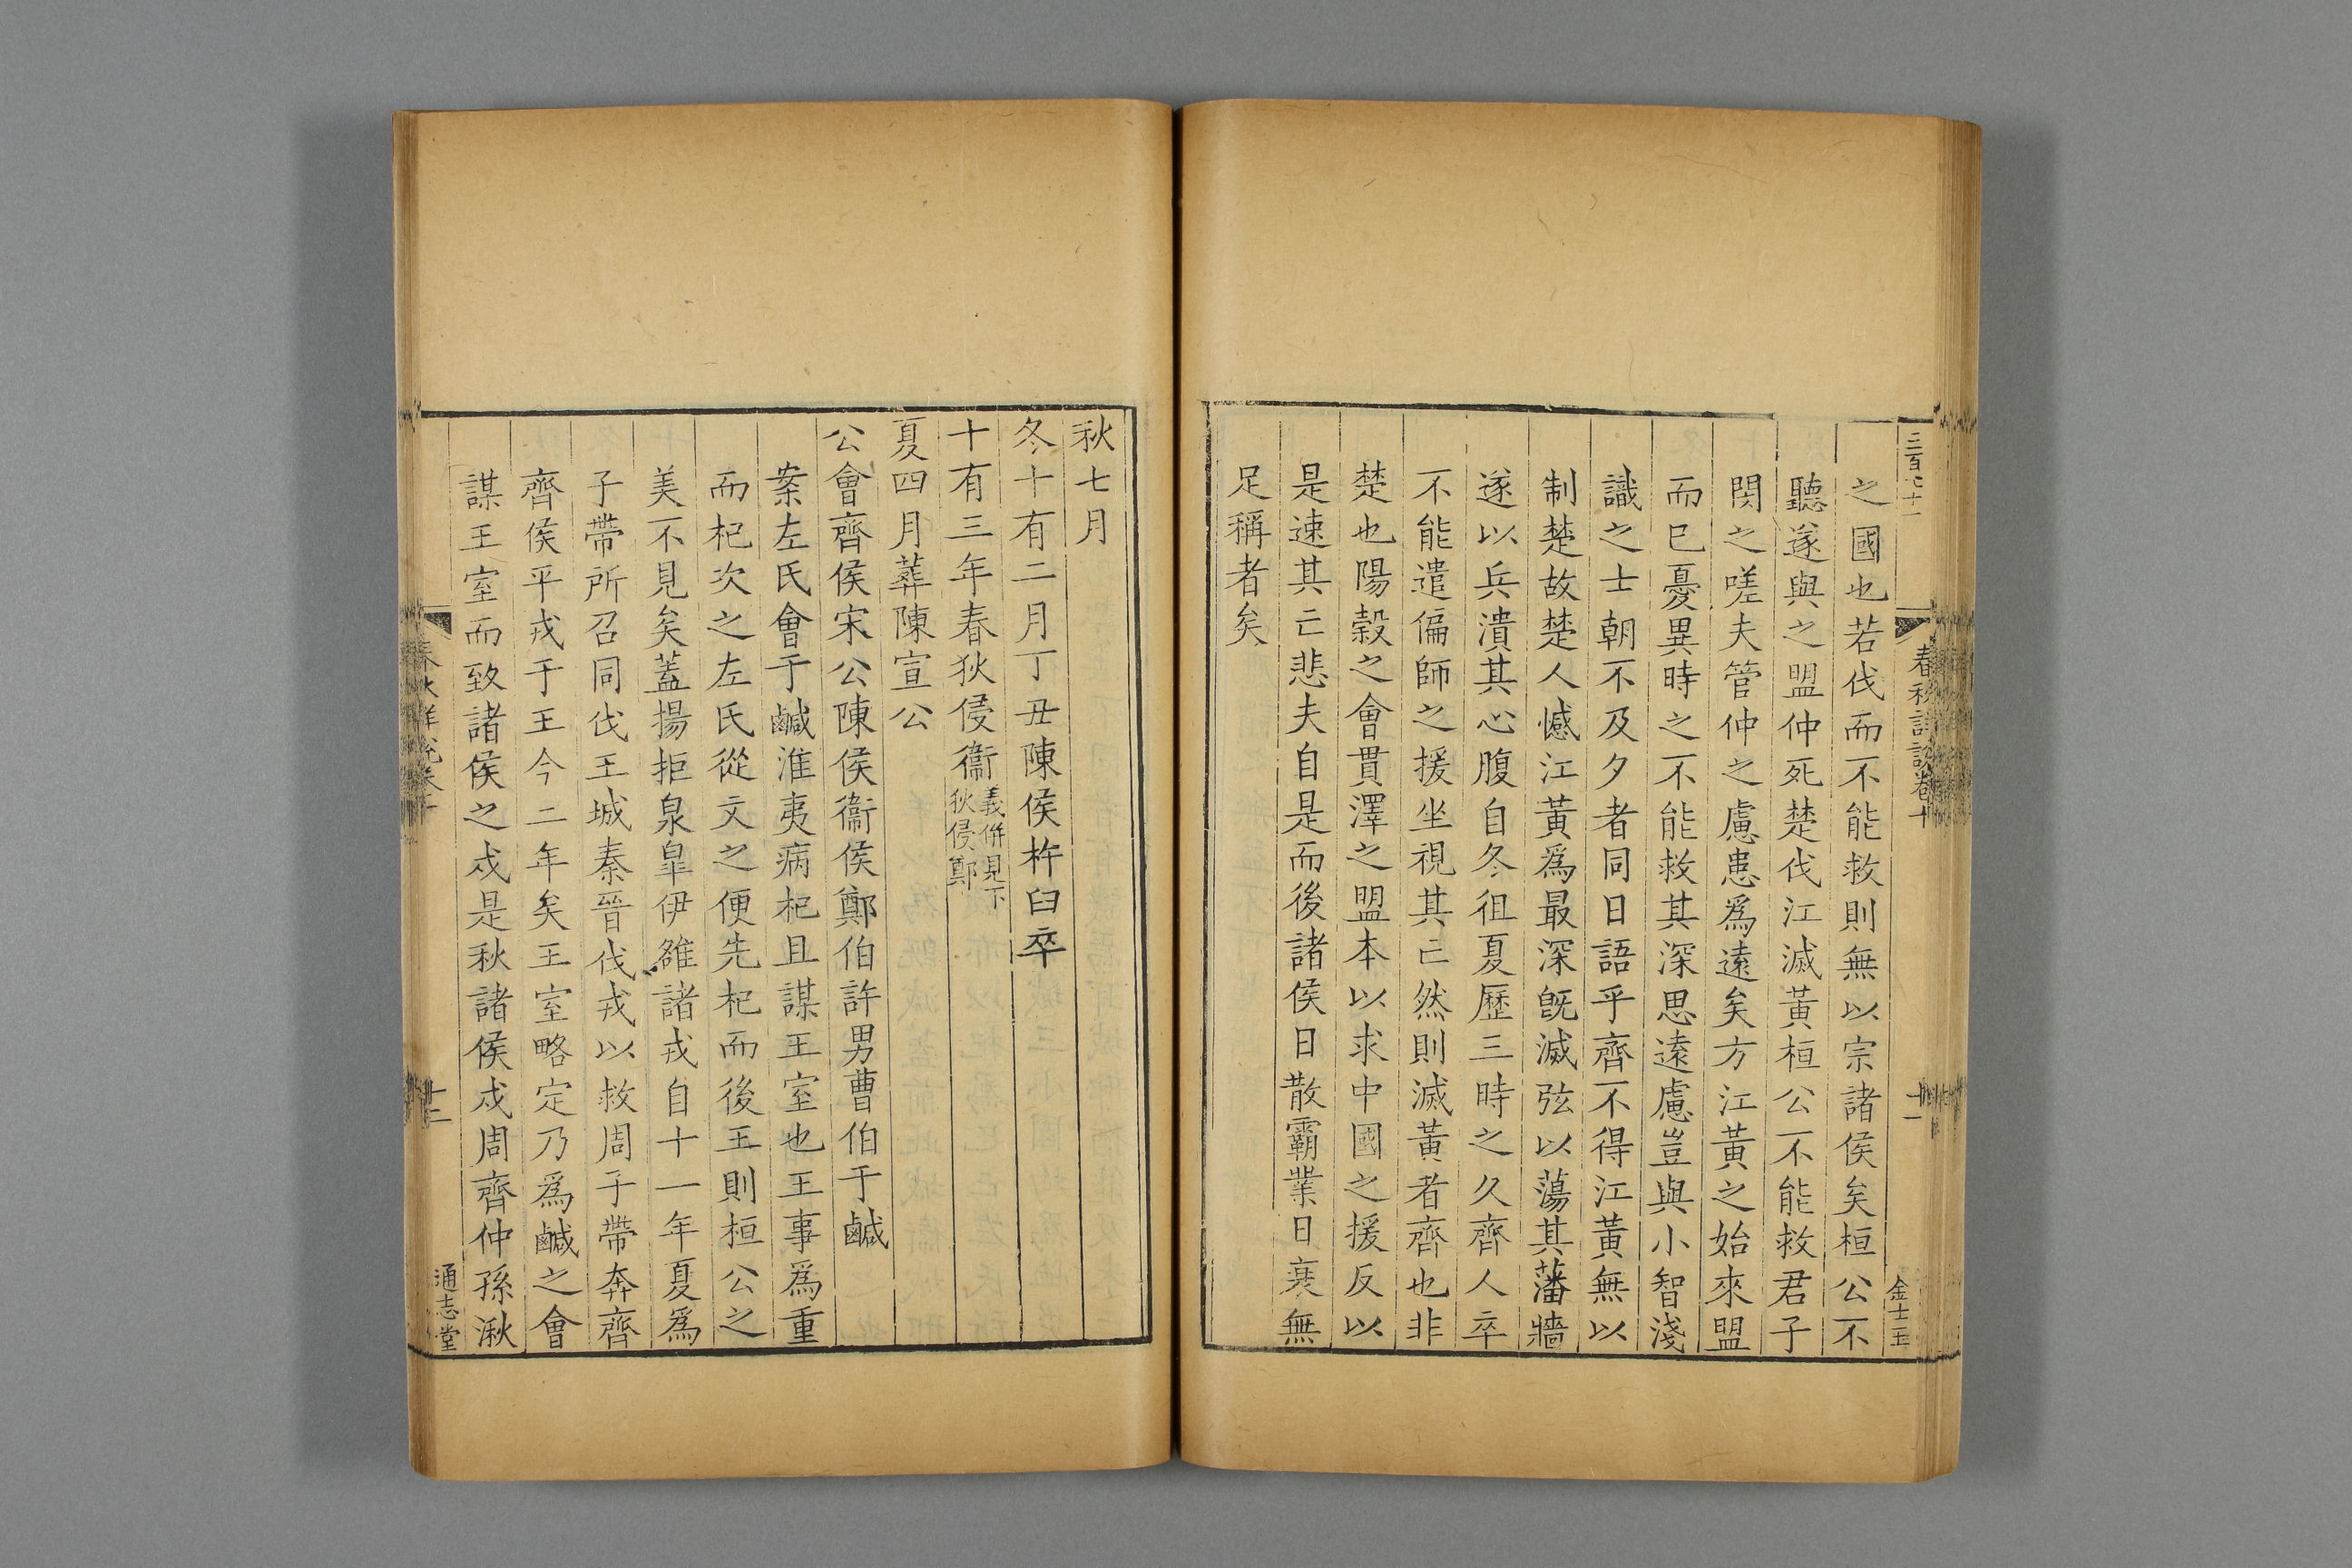 春秋詳說卷十
十一
金士玉
之國也若伐而不能救則無以宗諸侯矣桓公不
聽遂與之盟仲死楚伐江滅黃桓公不能救君子
閔之嗟夫管仲之慮患爲遠矣方江黃之始來盟
而已憂異時之不能救其深思遠慮豈與小智淺
識之士朝不及夕者同日語乎齊不得江黃無以
制楚故楚人憾江黃爲最深旣滅弦以蕩其藩牆
遂以兵潰其心腹自冬徂夏歷三時之久齊人卒
不能遣偏師之援坐視其亡然則滅黃者齊也非
楚也陽穀之會貫澤之盟本以求中國之援反以
是速其亡悲夫自是而後諸侯日散霸業日衰無
足稱者矣
秋七月
冬十有二月丁丑陳侯杵臼卒
十有三年春狄侵衞義併見下
狄侵鄭
夏四月葬陳宣公
公會齊侯宋公陳侯衞侯鄭伯許男曹伯于鹹
案左氏會于鹹淮夷病杞且謀王室也王事爲重
而杞次之左氏從文之便先杞而後王則桓公之
美不見矣蓋揚拒泉臯伊雒諸戎自十一年夏爲
子帶所召同伐王城秦晉伐戎以救周子帶奔齊
齊侯平戎于王今二年矣王室略定乃爲鹹之會
謀王室而致諸侯之戍是秋諸侯戍周齊仲孫湫
十二
通志堂